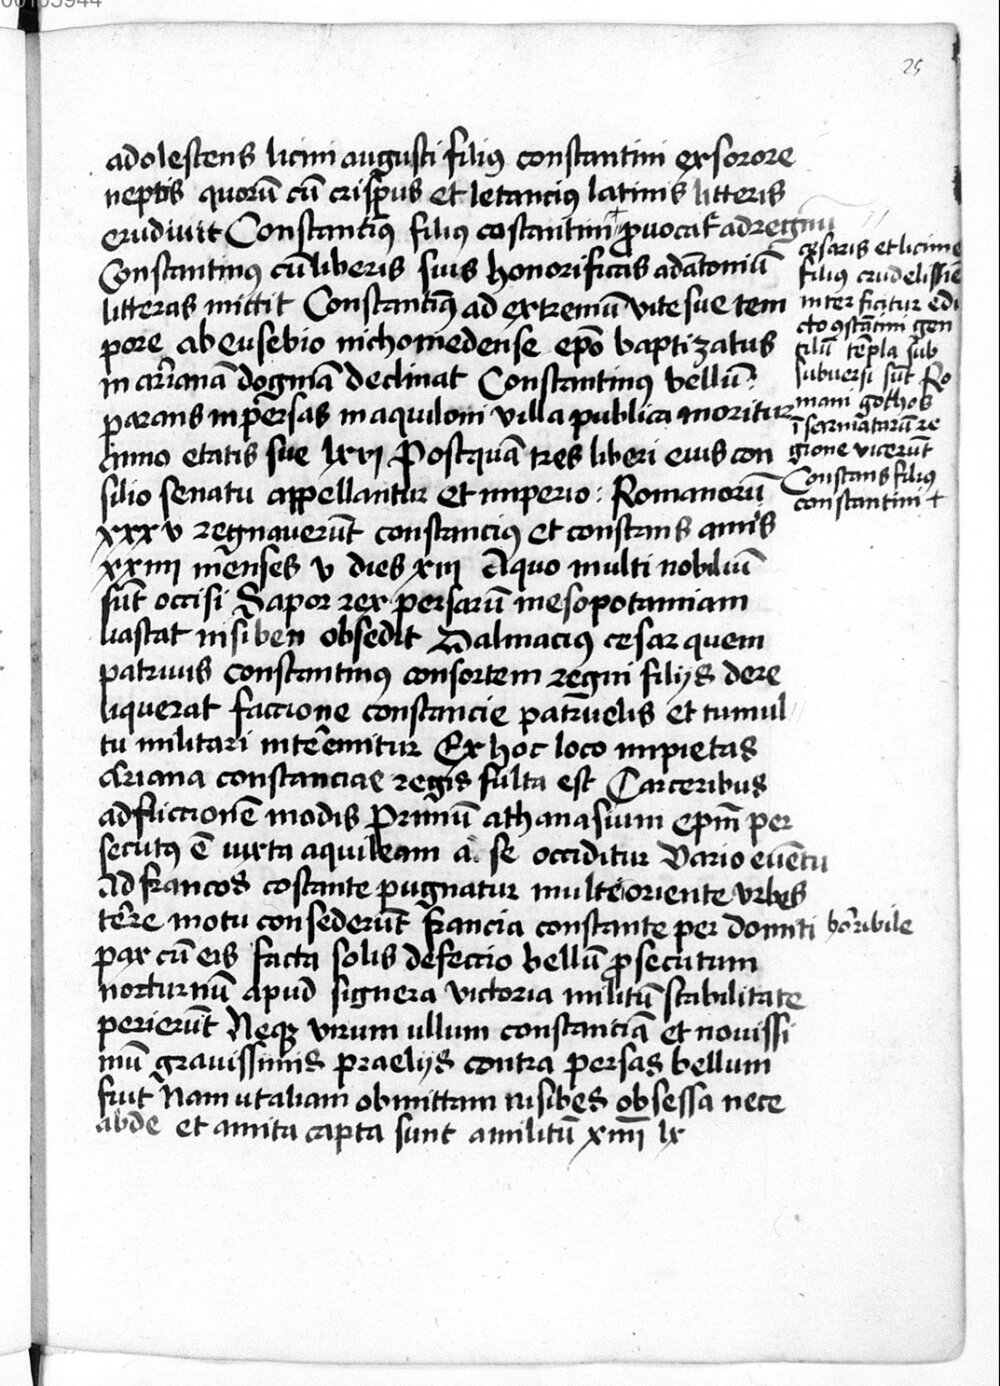 25
adolescens licini augusti filius constantini ex sorore
neptis quorū cū crispus et letancius latinis litteris
erudivit Constantius filius costantini + pvocat̄ ad regnū
Constantinus cū liberis suis honorificas ad ātoniū
litteras mittit Constantius ad extremū vite sue tem
pore ab eusebio nichomedense ep̄o baptizatus
in arrianā dogmā declinat Constantinus bellū
parans in persas in aquiloni villa publica moritur
Anno etatis sue lxvi Postquā tres liberi eius con
silio senatu appellantur et imperio : Romanorū
xxxv regnaverūt constancius et constans annis
xxiiii menses v dies xiii A quo multi nobiliū
sūt occisi Sapor rex persarū mesopotamiam
vastat nisiben obsedit Dalmacius cesar quem
patruus constantinus consortem regni filijs dere
liquerat faccione constancie patruelis et tumul
tu militari interemitur Ex hoc loco impietas
Arriana constanciae regis fulta est Carceribus
adflictionē modis Primū athanasium epm̄ per
secutus ē iuxta aquileam a se occiditur Vario evētu
Ad francos costante pugnatur multe oriente urbes
terre motu consederūt francia constante per domiti
pax cū eis facta solis defeccio bellū psecutum
nocturnū apud signera victoria militū stabilitate
perierūt Neque virum ullum constantiā et novissi
mū gravissimis praelijs contra persas bellum
fuit Nam ut aliam obmittam nisibes obsessa nece
abde et amita capta sunt a militū xiiii lx
cesaris et licinie
filius crudelissie
inter ficitur edi
cto ꝯstātini gen
tiliū tēpla sub
subversi sūt Ro
mani gothos
ī sarmatarū re
gione vicerūt
Constans filius
constantini +
horribile